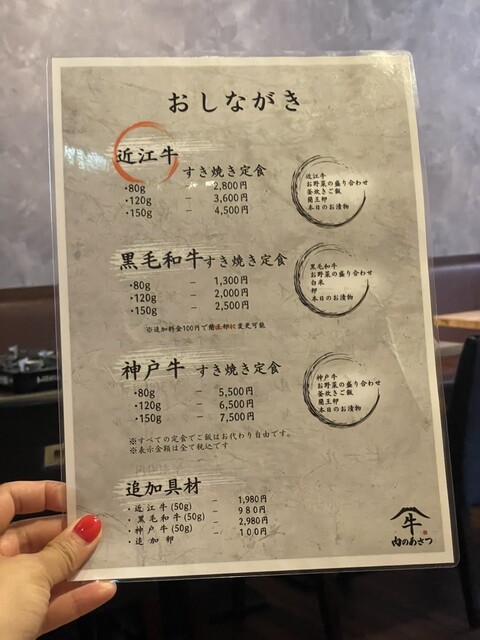 おしながき
近江牛 すき焼き定食
・80g － 2,800円
・120g － 3,600円
・150g － 4,500円
近江牛
お野菜の盛り合わせ
釜炊きご飯
蘭王卵
本日のお漬物
黒毛和牛 すき焼き定食
・80g － 1,300円
・120g － 2,000円
・150g － 2,500円
※追加料金100円で蘭王卵に変更可能
黒毛和牛
お野菜の盛り合わせ
白米
卵
本日のお漬物
神戸牛 すき焼き定食
・80g － 5,500円
・120g － 6,500円
・150g － 7,500円
神戸牛
お野菜の盛り合わせ
釜炊きご飯
蘭王卵
本日のお漬物
※すべての定食でご飯はお代わり自由です。
※表示金額は全て税込です
追加具材
・近江牛(50g) － 1,980円
・黒毛和牛(50g) － 980円
・神戸牛(50g) － 2,980円
・追加卵 － 100円
牛
肉のあさつ